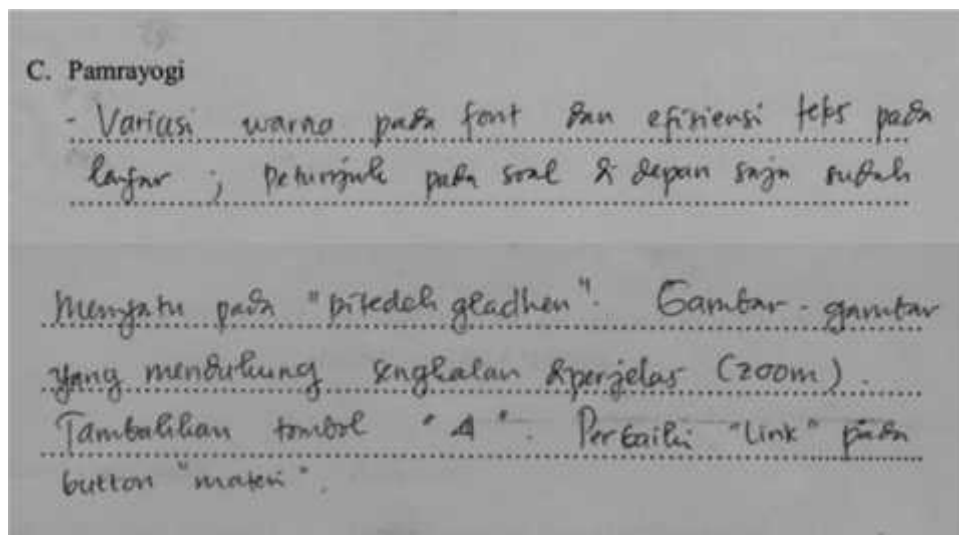 C. Pamrayogi
- Variasi warna pada font dan efisiensi teks pada
layar ; petunjuk pada soal di depan saja sudah
menyatu pada "pitedah gladhen". Gambar-gambar
yang mendukung sengkalan diperjelas (zoom).
Tambahkan tombol " ". Perbaiki "link" pada
button "materi".